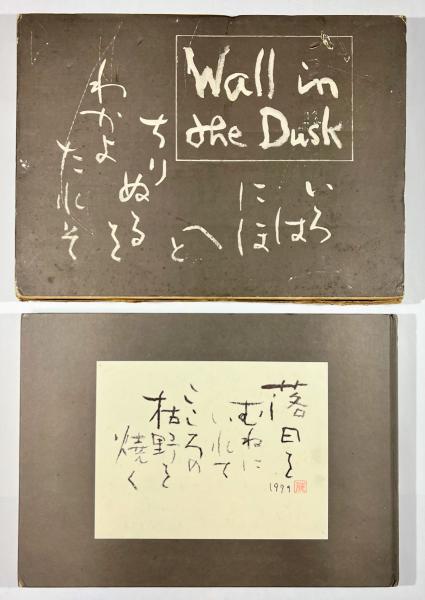 Wall in
the Dusk
いろ
は
にほ
へ
と
ちり
ぬるを
わかよ
たれそ
落日を
むねに
いれて
こころの
枯野を
焼く
1979